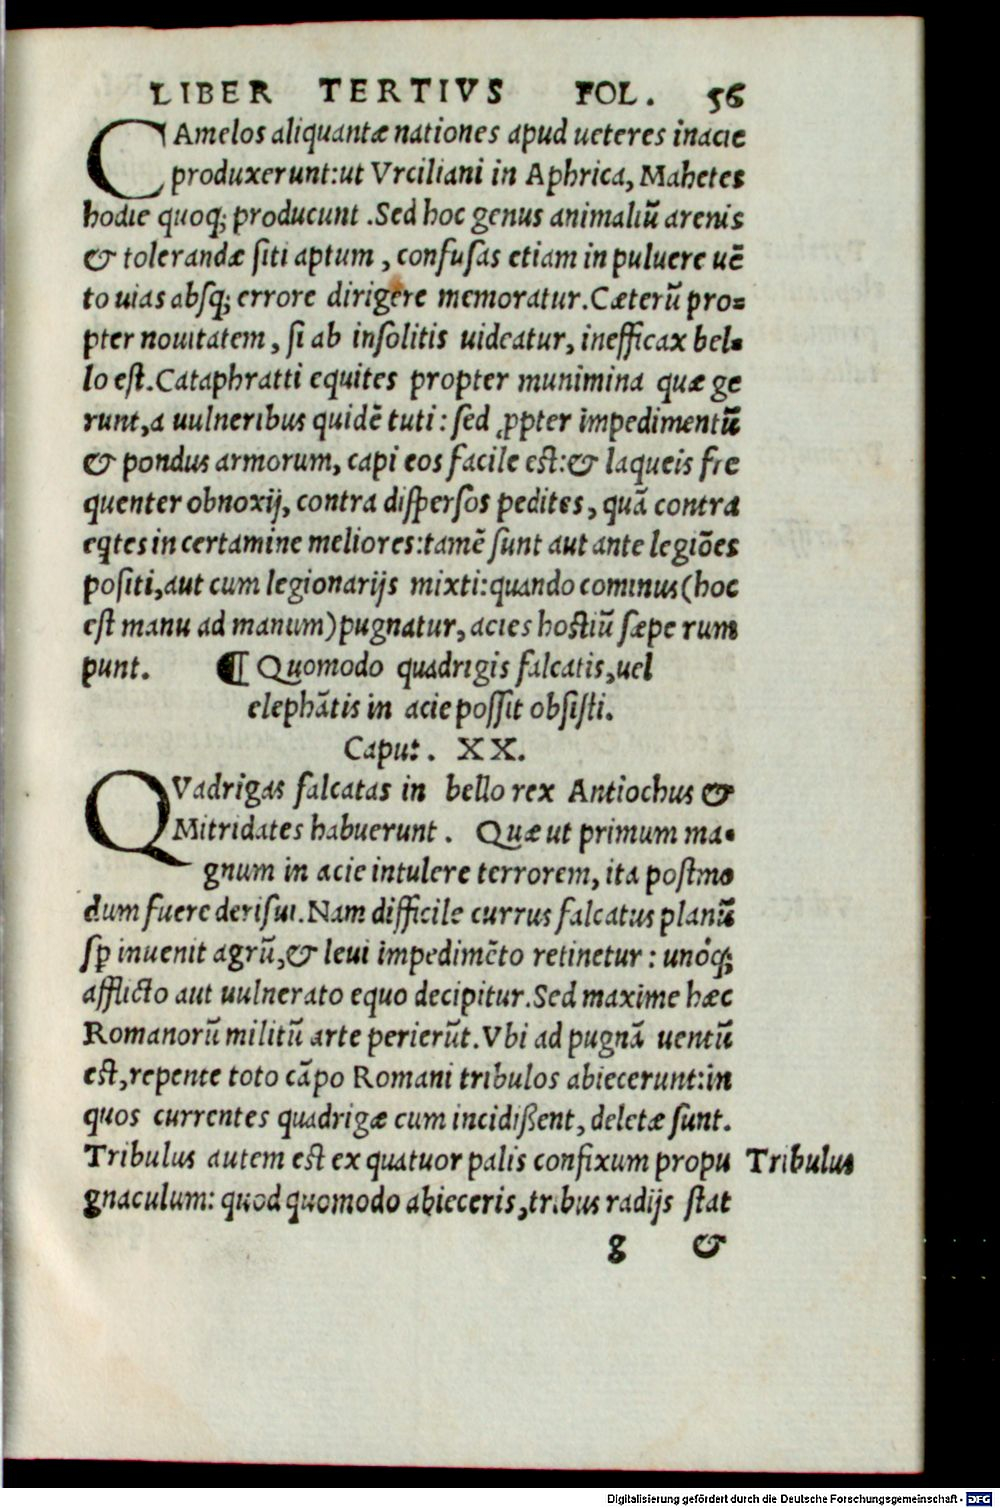 LIBER TERTIVS FOL. 56
CAmelos aliquantæ nationes apud ueteres inacie
produxerunt:ut Vrciliani in Aphrica, Mahetes
hodie quoq; producunt .Sed hoc genus animaliũ arenis
& tolerandæ siti aptum, confusas etiam in puluere uẽ
to uias absq; errore dirigere memoratur.Cæterũ pro=
pter nouitatem, si ab insolitis uideatur, inefficax bel-
lo est.Cataphratti equites propter munimina quæ ge
runt,a uulneribus quidẽ tuti: sed ꝓpter impedimentũ
& pondus armorum, capi eos facile est:& laqueis fre
quenter obnoxij, contra dispersos pedites, quã contra
eq̃tes in certamine meliores:tamẽ sunt aut ante legiões
positi,aut cum legionarijs mixti:quando cominus(hoc
est manu ad manum)pugnatur, acies hostiũ sæpe rum
punt. ¶ Quomodo quadrigis falcatis,uel
elephãtis in acie possit obsisti.
Caput. XX.
QVadrigas falcatas in bello rex Antiochus &
Mitridates habuerunt. Quæ ut primum ma-
gnum in acie intulere terrorem, ita postmo
dum fuere derisui.Nam difficile currus falcatus planũ
sꝑ inuenit agrũ,& leui impedimẽto retinetur: unóq;
afflicto aut uulnerato equo decipitur.Sed maxime hæc
Romanorũ militũ arte perierũt.Vbi ad pugnã uentũ
est,repente toto cãpo Romani tribulos abiecerunt:in
quos currentes quadrigæ cum incidißent, deletæ sunt.
Tribulus autem est ex quatuor palis confixum propu Tribulus
gnaculum: quod quomodo abieceris,tribus radijs stat
g &
Digitalisierung gefördert durch die Deutsche Forschungsgemeinschaft - DFG